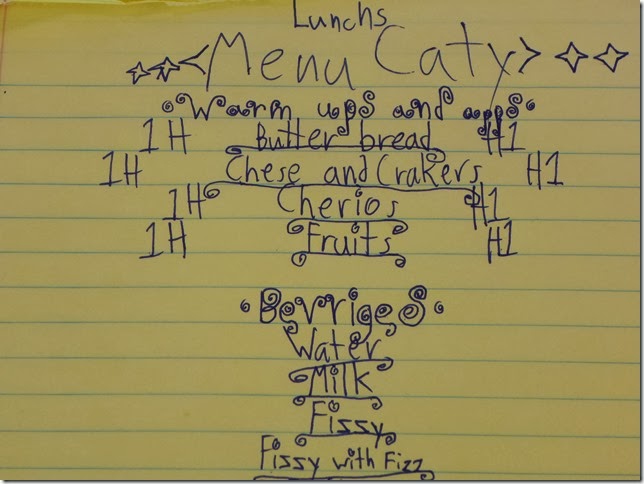 Lunchs
Menu Caty
Warm ups and apps
1H Butter bread H1
1H Chese and Crakers H1
1H Cherios H1
1H Fruits H1
Bevriges
Water
Milk
Fizzy
Fizzy with Fizz